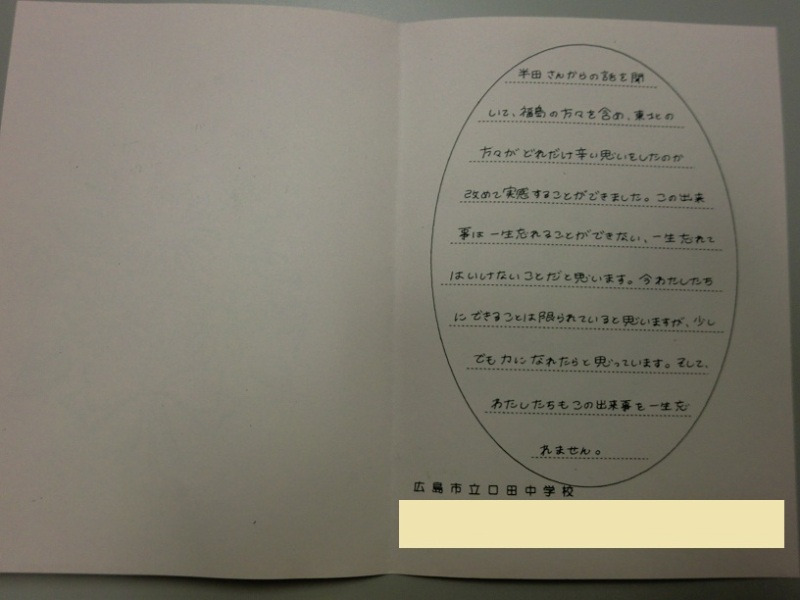 半田さんからの話を聞
いて、福島の方々を含め、東北の
方々がどれだけ辛い思いをしたのか
改めて実感することができました。この出来
事は一生忘れることができない、一生忘れて
はいけないことだと思います。今わたしたち
にできることは限られていると思いますが、少し
でも力になれたらと思っています。そして、
わたしたちもこの出来事を一生忘
れません。
広島市立口田中学校